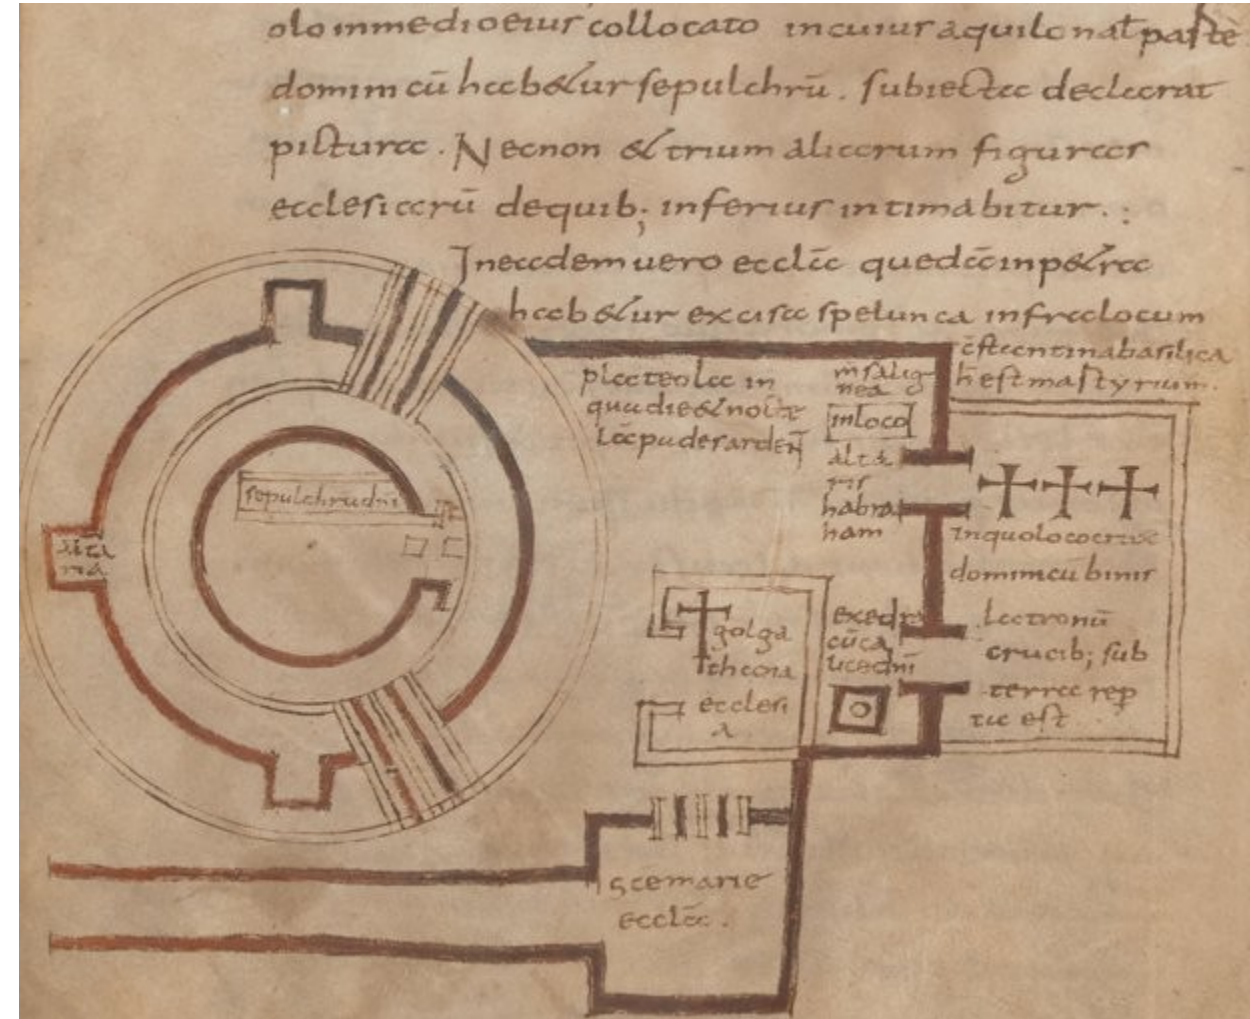 olo inmedio eius collocato in cuius aquilonat̄ parte
dominicū habetur sepulchrū. subiecta declarat
pictura. Necnon & trium aliarum figuras
ecclesiarū dequib; inferius intimabitur.
In eadem uero eccła quedā inpetra
habetur excisa spelunca infra locum
plateola in
qua die & nocte
lāpades ardent̄
mīsa lig
nea
inloco
alta
ris
habra
ham
cōstantina basilica
h̄ est martyrium.
inquo loco crux
dominicū binis
latronū
crucib; sub
terra rep
ta est
sepulchrū dn̄i
alta
ria
golga
thana
ecclesi
a
exedra
cū ca
lice dn̄i
scē marie
eccła.